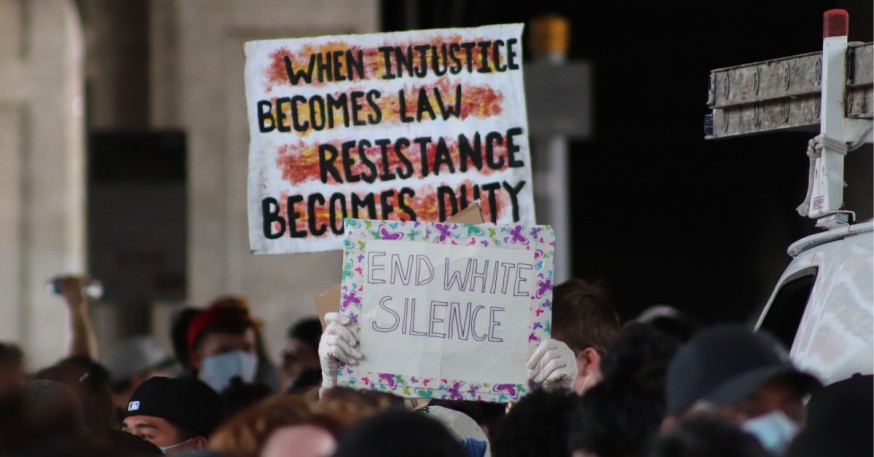 WHEN INJUSTICE
BECOMES LAW
RESISTANCE
BECOMES DUTY
END WHITE
SILENCE